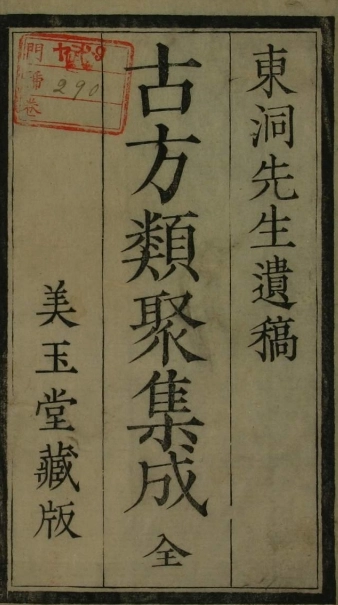 東洞先生遺稿
古方類聚集成 全
美玉堂藏版
門
番
卷
290